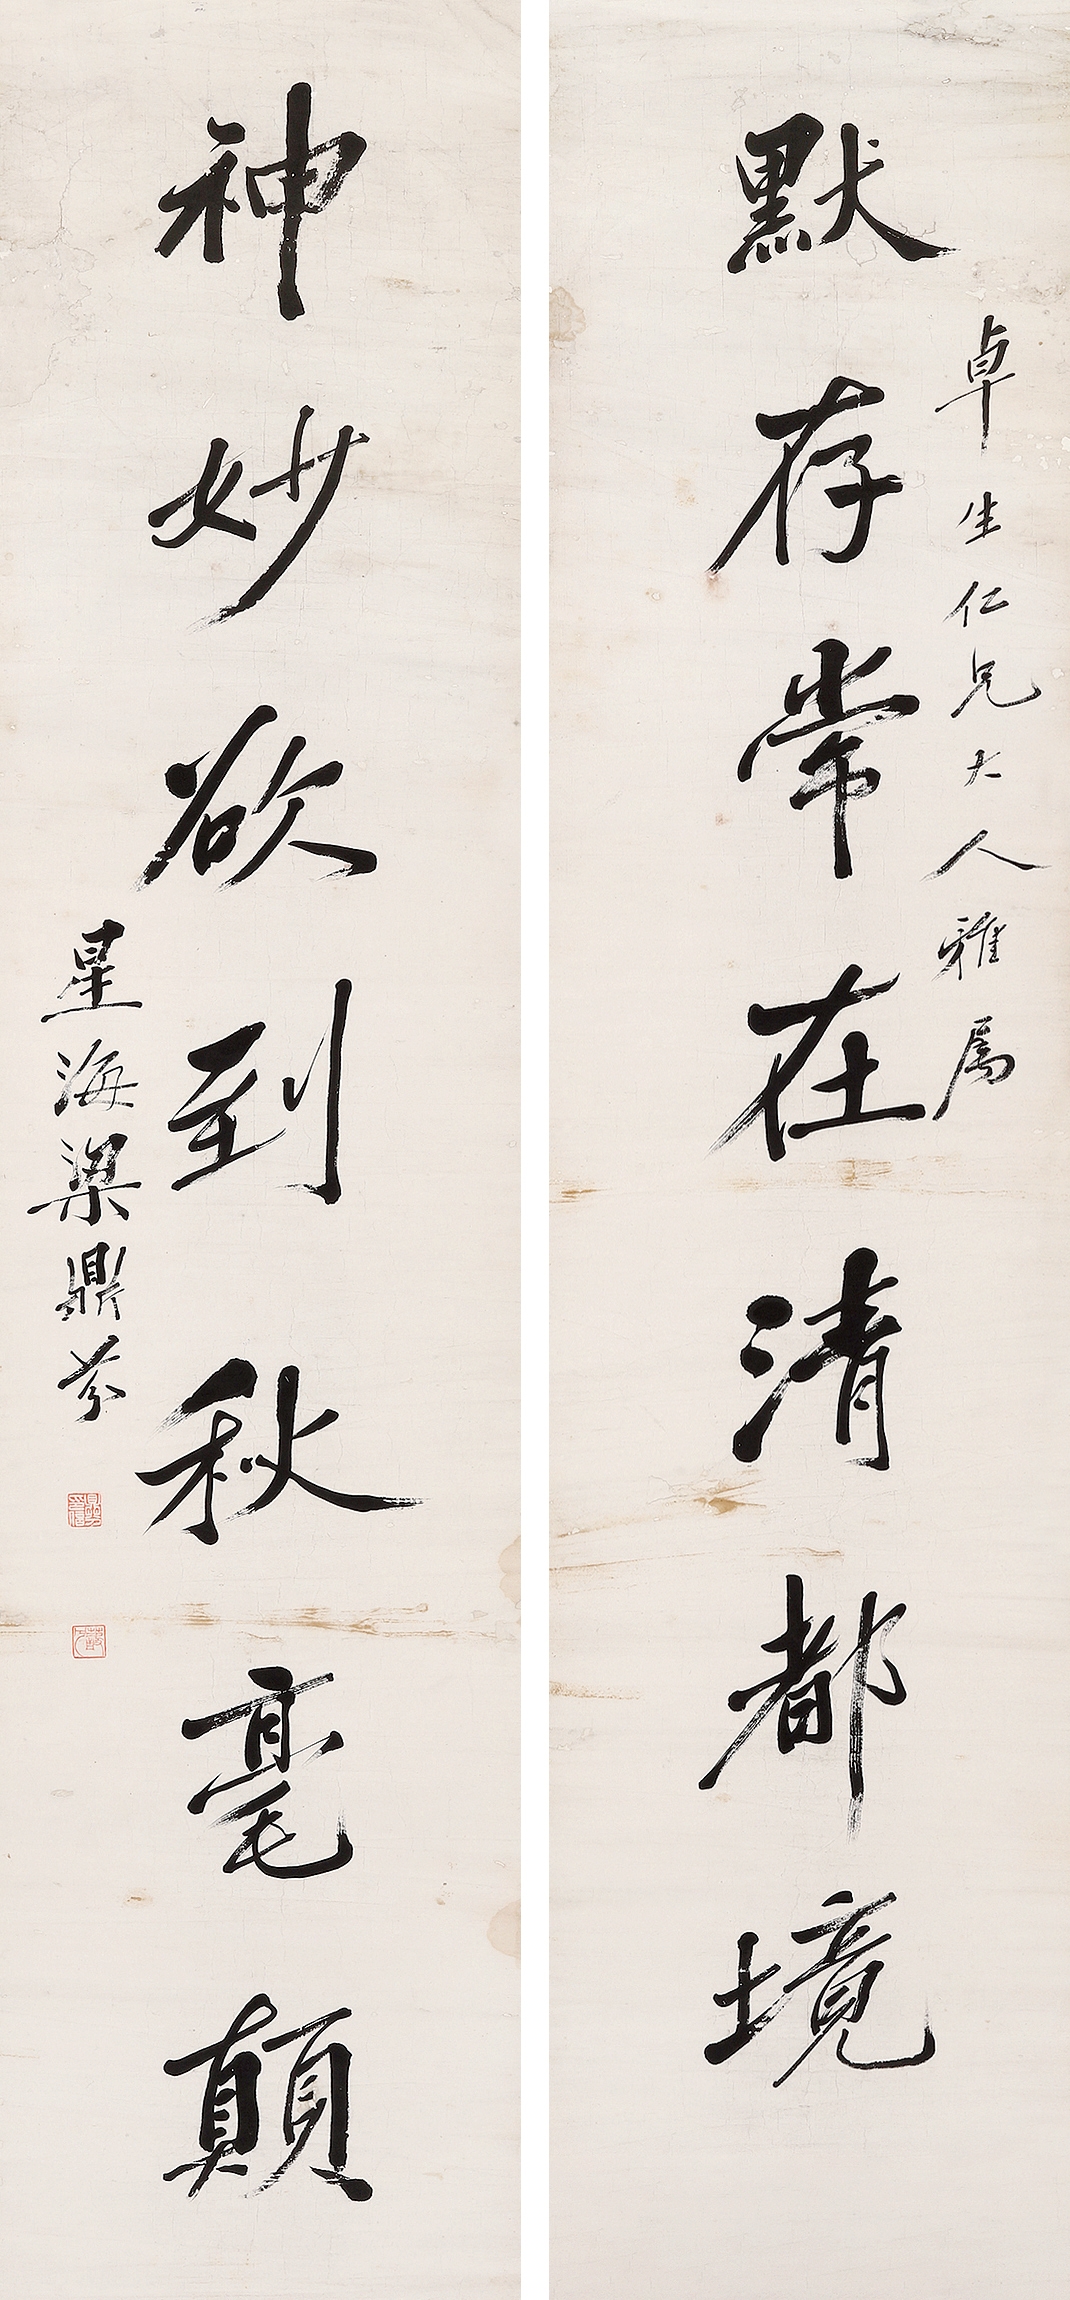 默存常在清都境
卓生仁兄大人雅属
神妙欲到秋毫颠
星海梁鼎芬